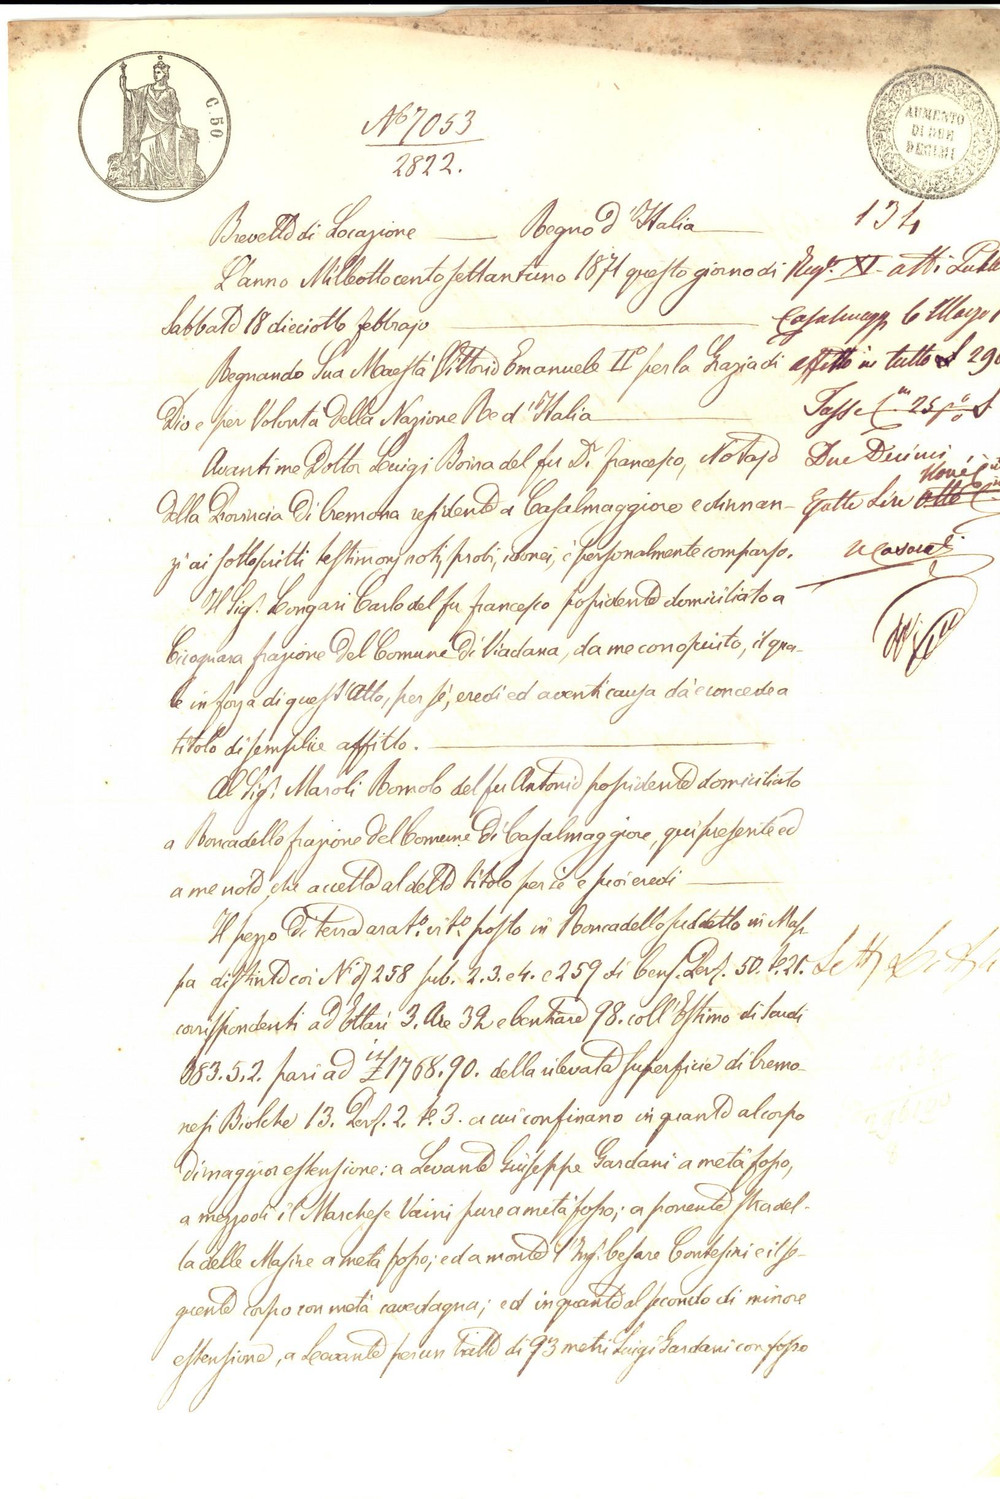 C. 50.
AUMENTO
DI DUE
DECIMI
N° 7053
2822.
134
Brevetto di Locazione — Regno d'Italia
L'anno Mille otto cento settantuno 1871 questo giorno di
Sabbato 18 dieciotto febbrajo
Regnando Sua Maestà Vittorio Emanuele II° per la Grazia di
Dio e per Volontà della Nazione Re d'Italia
Avanti me Dottor Luigi Boina del fu Dr. Francesco, Notajo
della Provincia di Cremona residente a Casalmaggiore e dinnan-
zi ai sottoscritti testimonj noti, probi, idonei, è personalmente comparso.
Il Sigr. Longari Carlo del fu Francesco possidente domiciliato a
Cicognara frazione del Comune di Viadana, da me conosciuto, il qua-
le in forza di quest'Atto, per sé, eredi ed aventi causa dà e concede a
titolo di semplice affitto.
Al Sigr. Maroli Romolo del fu Antonio possidente domiciliato
a Roncadello frazione del Comune di Casalmaggiore, qui presente ed
a me noto, che accetta al detto titolo per sé e suoi eredi
Il pezzo di terra arato. vito. posto in Roncadello suddetto in Map-
pa distinto coi Ni. di 258 sub. 2. 3. e 4. e 259 di Cens. Pert. 50. t. 21.
corrispondenti ad Ettari 3. Are 32 e Centiare 98. coll'Estimo di Scudi
383. 5. 2. pari ad £ 1768. 90. della rilevata superficie di Cremo-
nesi Biolche 13. Pert. 2. t. 3. a cui confinano in quanto al corpo
di maggior estensione: a Levante Giuseppe Gardani a metà fosso,
a mezzodì il Marchese Vaini pure a metà fosso; a ponente stradel-
la delle Masire a metà fosso; ed a monte l'Ingr. Cesare Contesini e il se-
guente corpo con metà cavedagna; ed in quanto al secondo di minore
estensione, a Levante per un tratto di 93 metri Luigi Gardani con fosso
Regr. XI. atti Pubb
Casalmagg. 6 Marzo
affitto in tutto £ 29
Tasse
Due Decimi
Nove
Esatte Lire